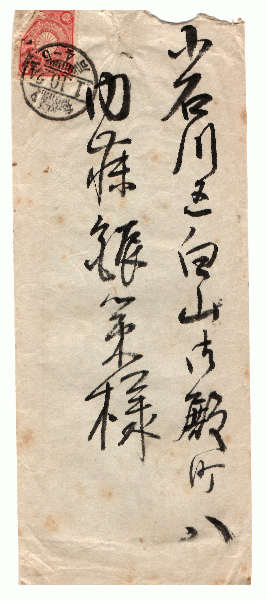 小石川区白山御殿町八
内藤鋠策様